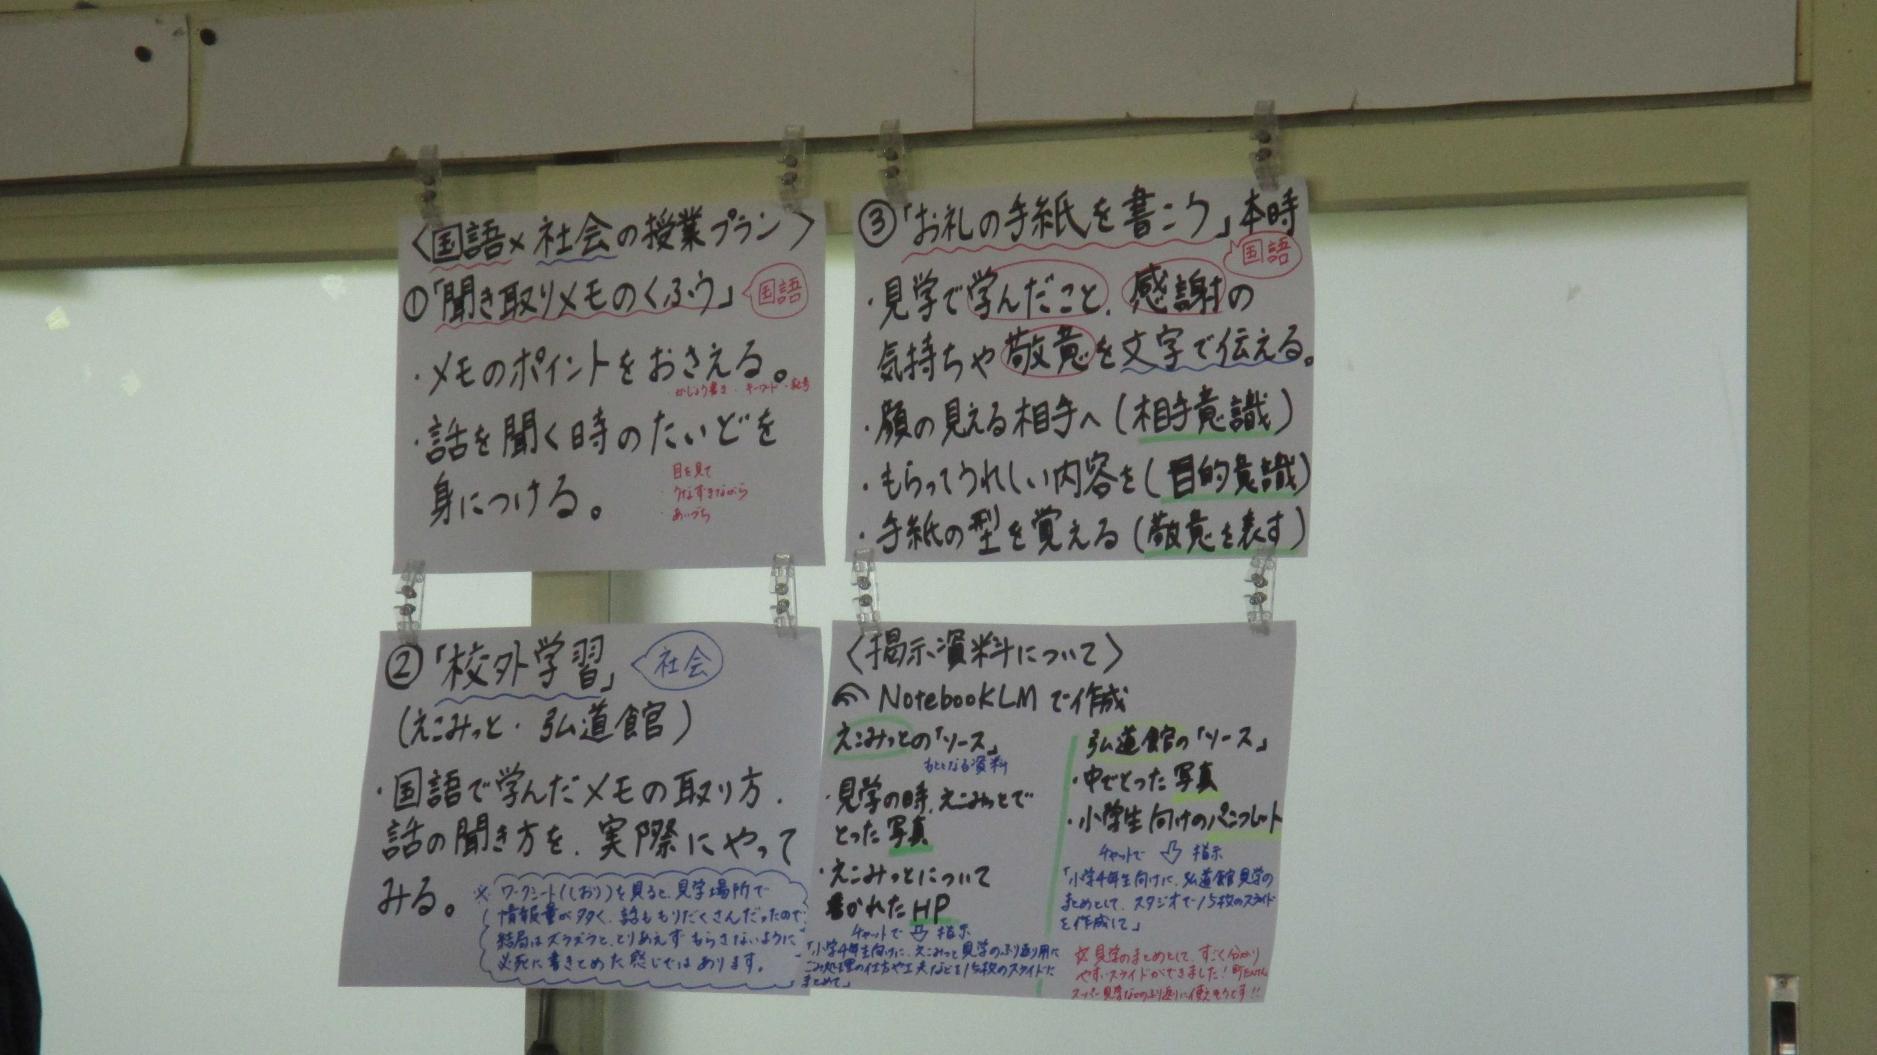 〈国語×社会の授業プラン〉
①「聞き取りメモのくふう」 国語
・メモのポイントをおさえる。
かじょう書き・キーワード・記号
・話を聞く時のたいどを
身につける。
目を見て
・うなずきながら
・あいづち
②「校外学習」 社会
(えこみっと・弘道館)
・国語で学んだメモの取り方、
話の聞き方を、実際にやって
みる。
※ワークシート(しおり)を見ると、見学場所で
情報量が多く、話ももりだくさんだったので
結局はズラズラと、とりあえずもらさないように
必死に書きとめた感じではあります。
③「お礼の手紙を書こう」本時
国語
・見学で学んだこと、感謝の
気持ちや敬意を文字で伝える。
・顔の見える相手へ(相手意識)
・もらってうれしい内容を(目的意識)
・手紙の型を覚える(敬意を表す)
〈掲示資料について〉
NotebookLMで作成
えこみっとの「ソース」
もとになる資料
・見学の時、えこみっとで
とった写真
・えこみっとについて
書かれたHP
チャットで⇩指示
「小学4年生向けに、えこみっと見学のふり返り用に
ごみ処理の仕方や工夫などを15枚のスライドに
まとめて」
弘道館の「ソース」
・中でとった写真
・小学生向けのパンフレット
チャットで⇩指示
「小学4年生向けに、弘道館見学の
まとめとして、スタジオで15枚のスライド
を作成して」
見学のまとめとして、すごく分かり
やすいスライドができました!町たんけん
スーパー見学などのふり返りに使えそうです!!